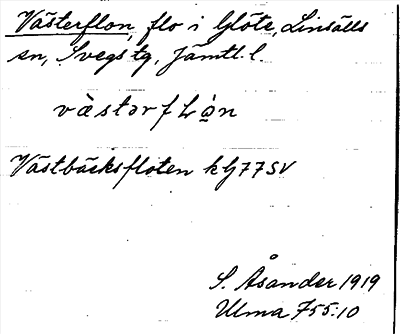 Västerflon, flo i Glöte, Linsälls
sn, Svegs tg, Jämtl. l.
västərfLo̠n
Västbäcksfloten kbg 77 SV
S. Åsander 1919
Ulma 755:10